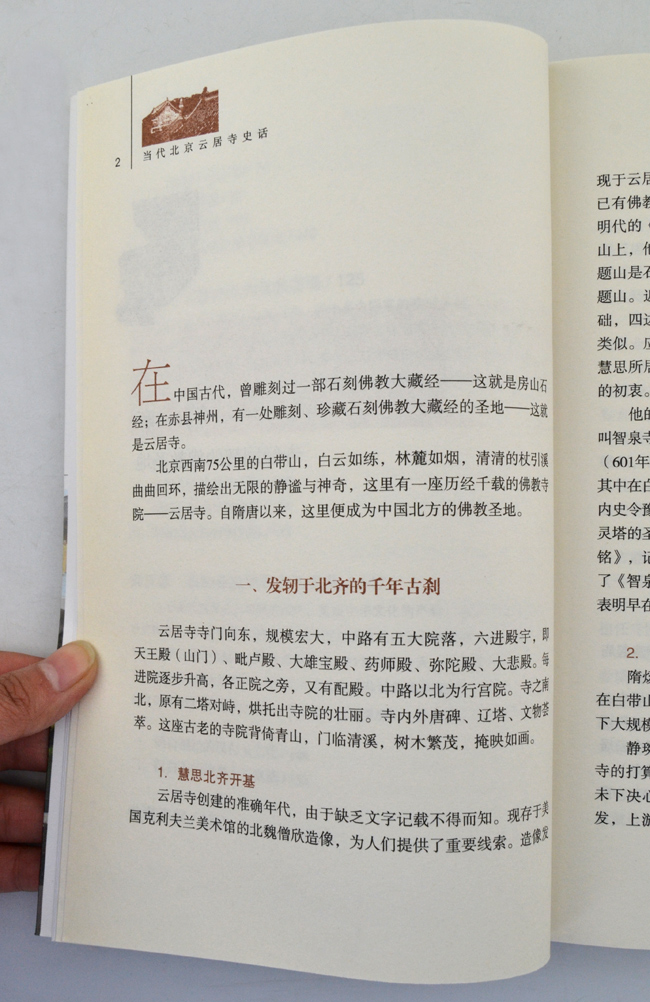 2
当代北京云居寺史话
在中国古代，曾雕刻过一部石刻佛教大藏经——这就是房山石
经；在赤县神州，有一处雕刻、珍藏石刻佛教大藏经的圣地——这就
是云居寺。
北京西南75公里的白带山，白云如练，林麓如烟，清清的杖引溪
曲曲回环，描绘出无限的静谧与神奇，这里有一座历经千载的佛教寺
院——云居寺。自隋唐以来，这里便成为中国北方的佛教圣地。
一、发轫于北齐的千年古刹
云居寺寺门向东，规模宏大，中路有五大院落，六进殿宇，即
天王殿（山门）、毗卢殿、大雄宝殿、药师殿、弥陀殿、大悲殿。每
进院逐步升高，各正院之旁，又有配殿。中路以北为行宫院。寺之南
北，原有二塔对峙，烘托出寺院的壮丽。寺内外唐碑、辽塔、文物荟
萃。这座古老的寺院背倚青山，门临清溪，树木繁茂，掩映如画。
1. 慧思北齐开基
云居寺创建的准确年代，由于缺乏文字记载不得而知。现存于美
国克利夫兰美术馆的北魏僧欣造像，为人们提供了重要线索。造像发
现于云居
已有佛教
明代的《
山上，他
题山是石
题山。
础，四边
类似。应
慧思所居
的初衷。
他的
叫智泉寺
（601年
其中在白
内史令豫
灵塔的圣
铭》，记
了《智泉
表明早在
2.
隋炀
在白带山
下大规模
静琬
寺的打算
未下决心
发，上游